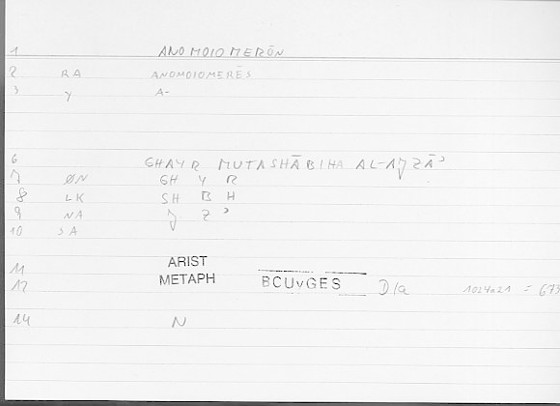 1 ANOMOIOMERŌN
2 RA ANOMOIOMERĒS
3 y A-
6 GHAYR MUTASHĀBIHA AL-AJZĀʾ
7 ØN GH Y R
8 LK SH B H
9 NA J Z ʾ
10 SA
11 ARIST
12 METAPH BCUvGES D/a 1024a21 = 673
14 N